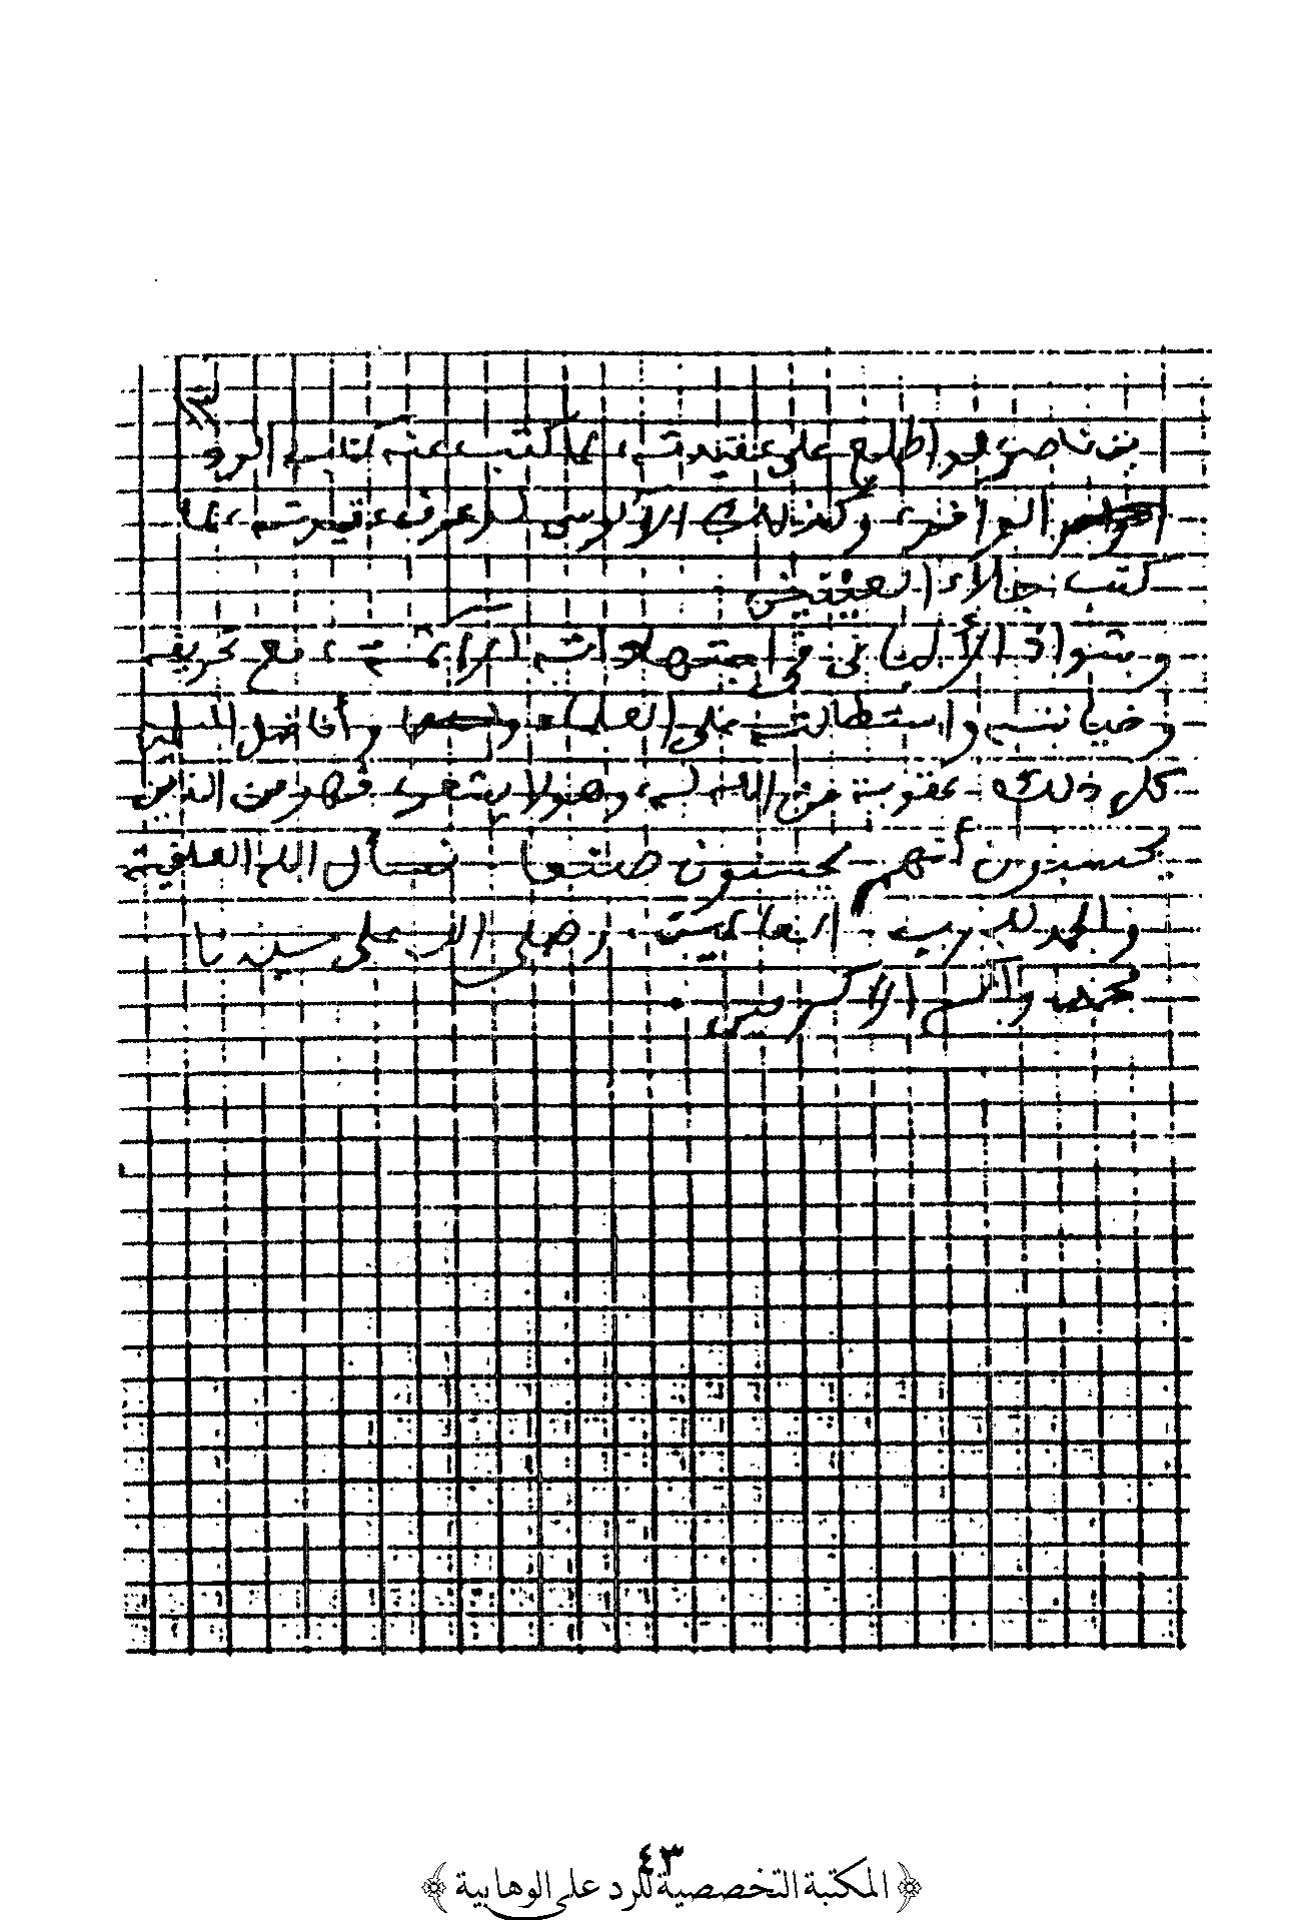 بن ناصر، لو اطلع على عقيدته، ما كتب عنه كتابه الرد
الوافر، وكذلك الآلوسي لو عرف عقيدته، ما
كتب جلاء العينين
وشواذ الألباني في اجتهاداته الآثمة، مع تحريفه
وخيانته واستطالته على العلماء وأفاضل المسلمين
كل ذلك عقوبة من الله له، وهو لا يشعر، فهو من الذين
يحسبون أنهم يحسنون صنعا نسأل الله العافية
والحمد لله رب العالمين، وصلى الله على سيدنا
محمد وآله الأكرمين.
٤٣
المكتبة التخصصية للرد على الوهابية